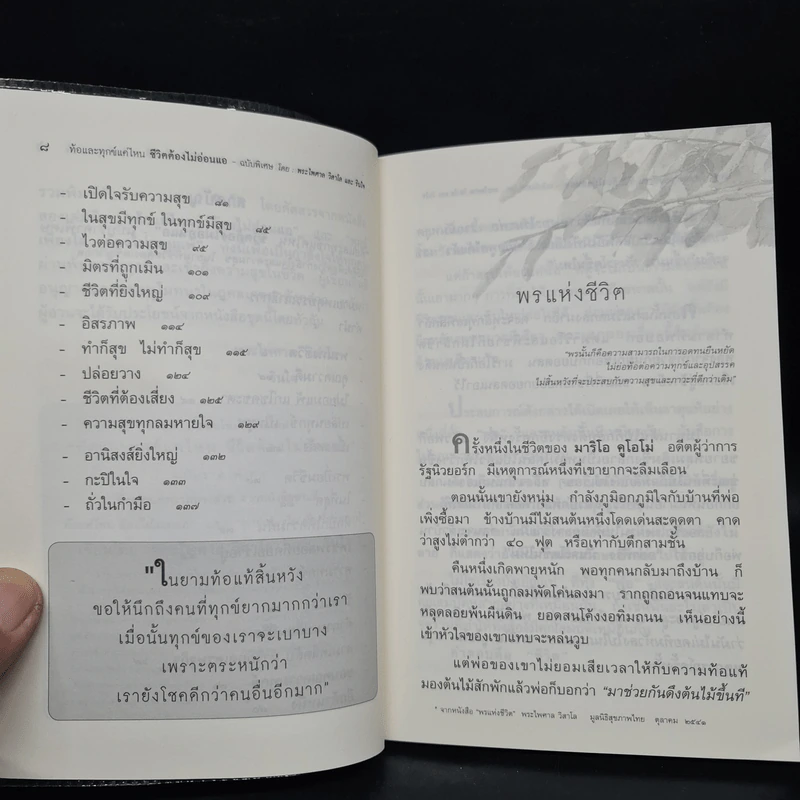 ๘ ท้อและทุกข์แค่ไหน ชีวิตต้องไม่อ่อนแอ – ฉบับพิเศษ โดย พระไพศาล วิสาโล และ
- เปิดใจรับความสุข ๘๑
- ในสุขมีทุกข์ ในทุกข์มีสุข ๘๕
- ไวต่อความสุข ๙๕
- มิตรที่ถูกเมิน ๑๐๑
- ชีวิตที่ยิ่งใหญ่ ๑๐๙
- อิสรภาพ ๑๑๔
- ทำก็สุข ไม่ทำก็สุข ๑๑๕
- ปล่อยวาง ๑๒๔
- ชีวิตที่ต้องเสี่ยง ๑๒๕
- ความสุขทุกลมหายใจ ๑๒๙
- อานิสงส์ยิ่งใหญ่ ๑๓๒
- กะปิในใจ ๑๓๓
- ถั่วในกำมือ ๑๓๗
"ในยามท้อแท้สิ้นหวัง
ขอให้นึกถึงคนที่ทุกข์ยากมากกว่าเรา
เมื่อนั้นทุกข์ของเราจะเบาบาง
เพราะตระหนักว่า
เรายังโชคดีกว่าคนอื่นอีกมาก"
พรแห่งชีวิต
"พรนั้นก็คือความสามารถในการอดทนยืนหยัด
ไม่ย่อท้อต่อความทุกข์และอุปสรรค
ไม่สิ้นหวังที่จะประสบกับความสุขและภาวะที่ดีกว่าเดิม"
ครั้งหนึ่งในชีวิตของ มาริโอ คูโอโม่ อดีตผู้ว่าการ
รัฐนิวยอร์ก มีเหตุการณ์หนึ่งที่เขายากจะลืมเลือน
ตอนนั้นเขายังหนุ่ม กำลังภูมิอกภูมิใจกับบ้านที่พ่อ
เพิ่งซื้อมา ข้างบ้านมีไม้สนต้นหนึ่งโดดเด่นสะดุดตา คาด
ว่าสูงไม่ต่ำกว่า ๔๐ ฟุต หรือเท่ากับตึกสามชั้น
คืนหนึ่งเกิดพายุหนัก พอทุกคนกลับมาถึงบ้าน ก็
พบว่าสนต้นนั้นถูกลมพัดโค่นลงมา รากถูกถอนจนแทบจะ
หลุดลอยพ้นผืนดิน ยอดสนโค้งงอทิ่มถนน เห็นอย่างนี้
เข้าหัวใจของเขาแทบจะหล่นวูบ
แต่พ่อของเขาไม่ยอมเสียเวลาให้กับความท้อแท้
มองต้นไม้สักพักแล้วพ่อก็บอกว่า "มาช่วยกันดึงต้นไม้ขึ้นที"
* จากหนังสือ "พรแห่งชีวิต" พระไพศาล วิสาโล มูลนิธิสุขภาพไทย ตุลาคม ๒๕๔๑